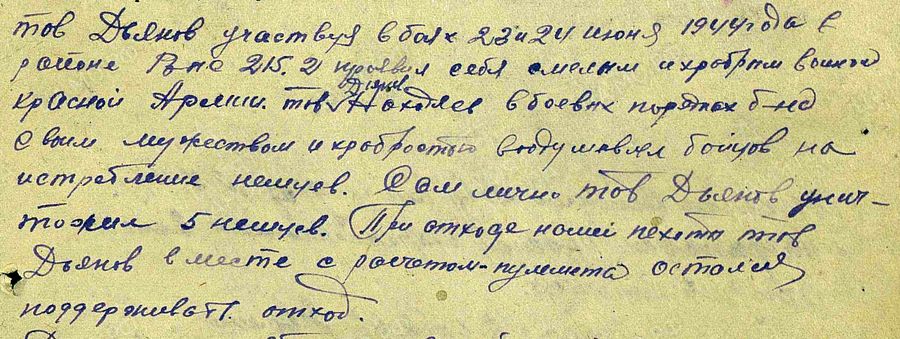 тов Дьянов участвуя в боях 23 и 24 июня 1944 года в
районе 215.2 проявил себя смелым и храбрым воином
Красной Армии. тов Дьянов Находясь в боевых порядках б-на
своим мужеством и храбростью воодушевлял бойцов на
истребление немцев. Сам лично тов Дьянов унич-
тожил 5 немцев. При отходе нашей пехоты тов
Дьянов вместе с расчетом-пулемета остался
поддерживать отход.